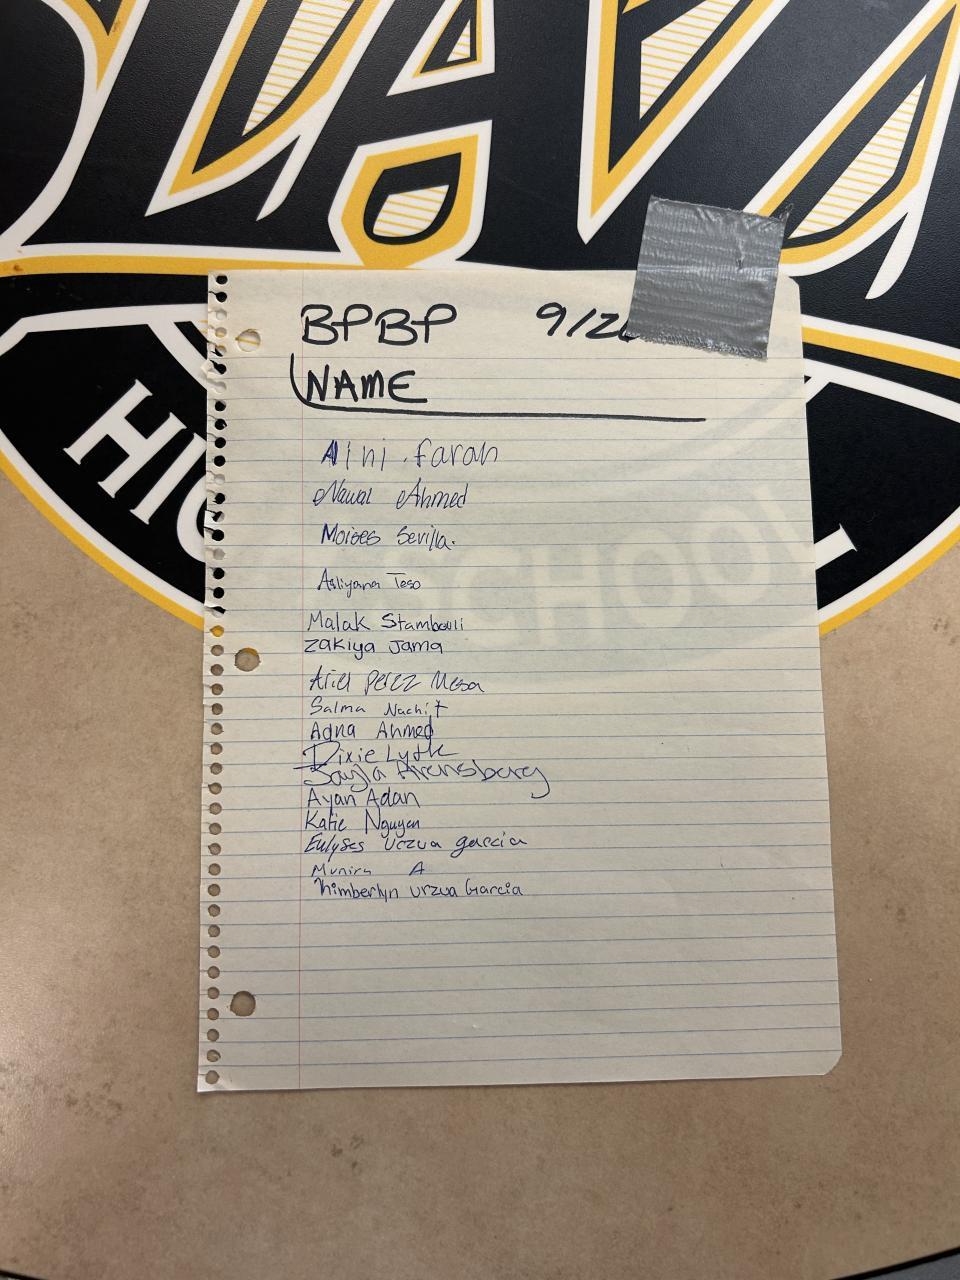 HIGH SCHOOL
BPBP 9/2
NAME
Aini Farah
Nawal Ahmed
Moises Sevilla.
Asliyana Teso
Malak Stambouli
Zakiya Jama
Ariel Perez Mesa
Salma Nachit
Adna Ahmed
Dixie Lytle
Jayla Arensberg
Ayan Adan
Katie Nguyen
Eulyses Urzua garcia
Munira A
Kimberlyn Urzua Garcia